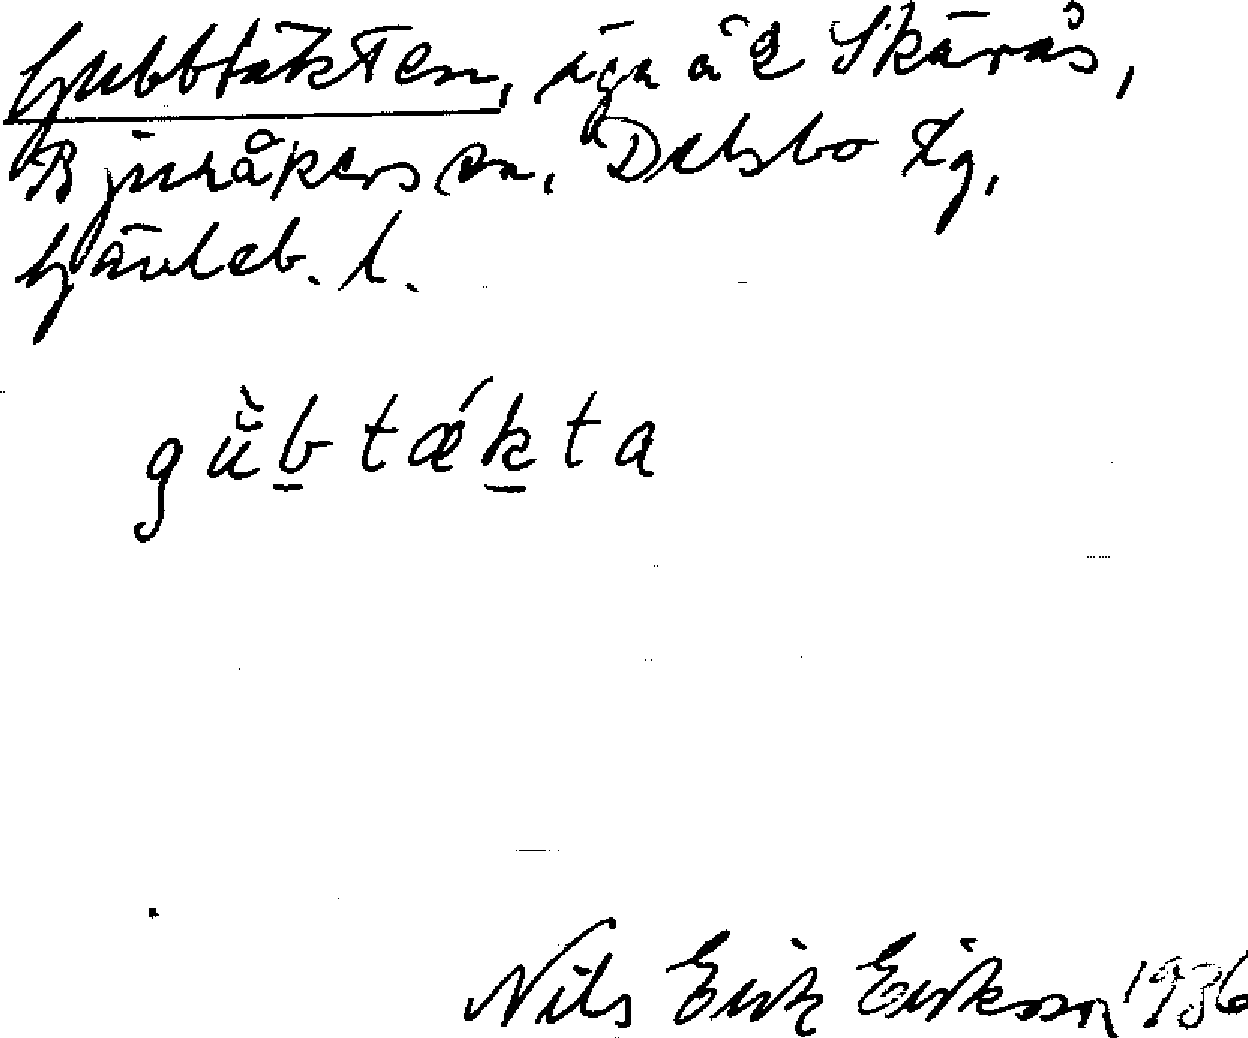 Gubbtäkten, äga å 2 Skärås,
Bjuråkers sn, Delsbo tg,
Gävleb. l.
gu̇̀b̲tǽk̲ta
Nils Erik Eriksson 1936